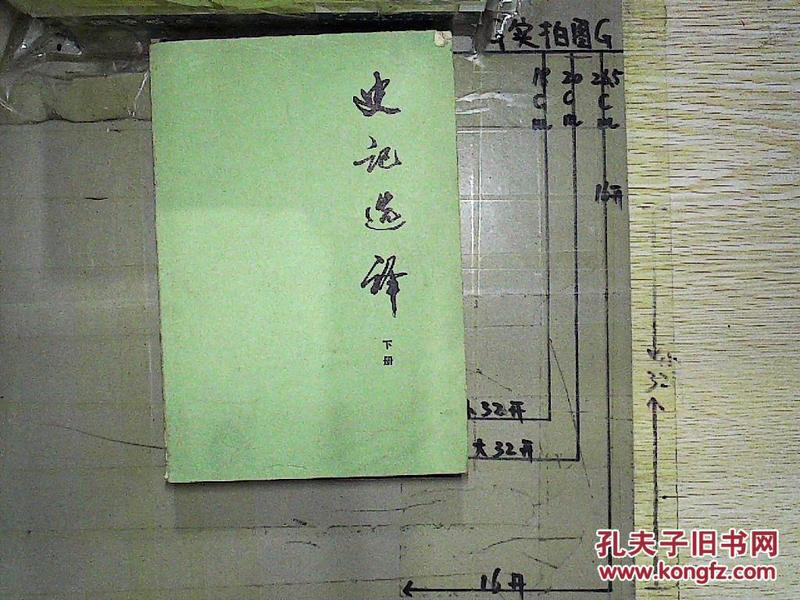 史记选译
下册
实拍图G
18cm
20cm
26.5cm
16开
32开
大32开
32
16开
孔夫子旧书网
www.kongfz.com